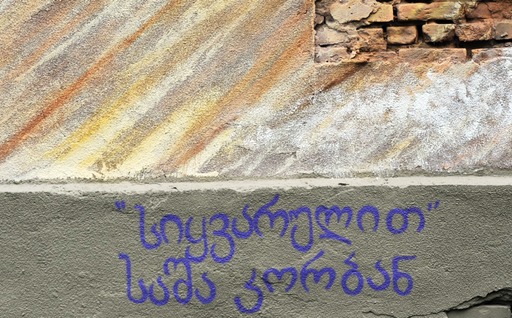 "სიყვარულით"
საშა კორბან